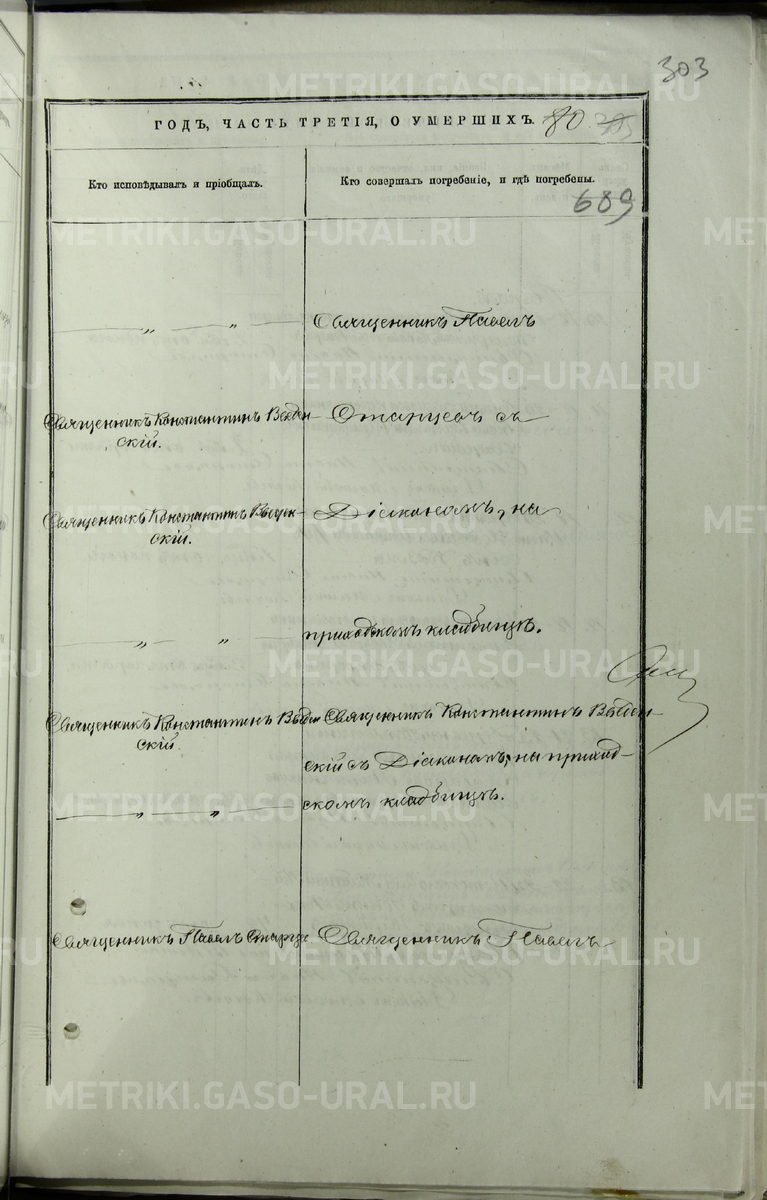 303
ГОДЪ, ЧАСТЬ ТРЕТІЯ, О УМЕРШИХЪ. 80
Кто исповѣдывалъ и пріобщалъ.
Кто совершалъ погребеніе, и гдѣ погребены.
689
— „ — „ —
Священникъ Павелъ
Священникъ Константинъ Введен-
скій.
Старцевъ съ
Священникъ Константинъ Введен-
скій.
Діакономъ, на
— „ — „ —
приходскомъ кладбищѣ.
Священникъ Константинъ Введен
скій.
Священникъ Константинъ Введен-
скій съ Діакономъ, на приход-
скомъ кладбищѣ.
— „ — „ —
Священникъ Павелъ Старце
Священникъ Павелъ
METRIKI.GASO-URAL.RU